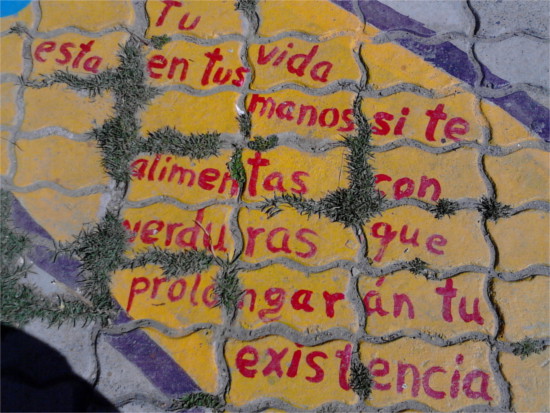 Tu vida
esta en tus
manos si te
alimentas con
verduras que
prolongarán tu
existencia